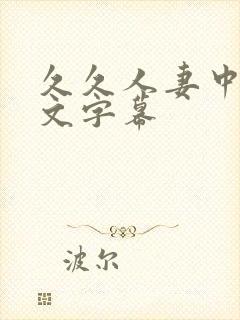 久久人妻中
文字幕
波尔